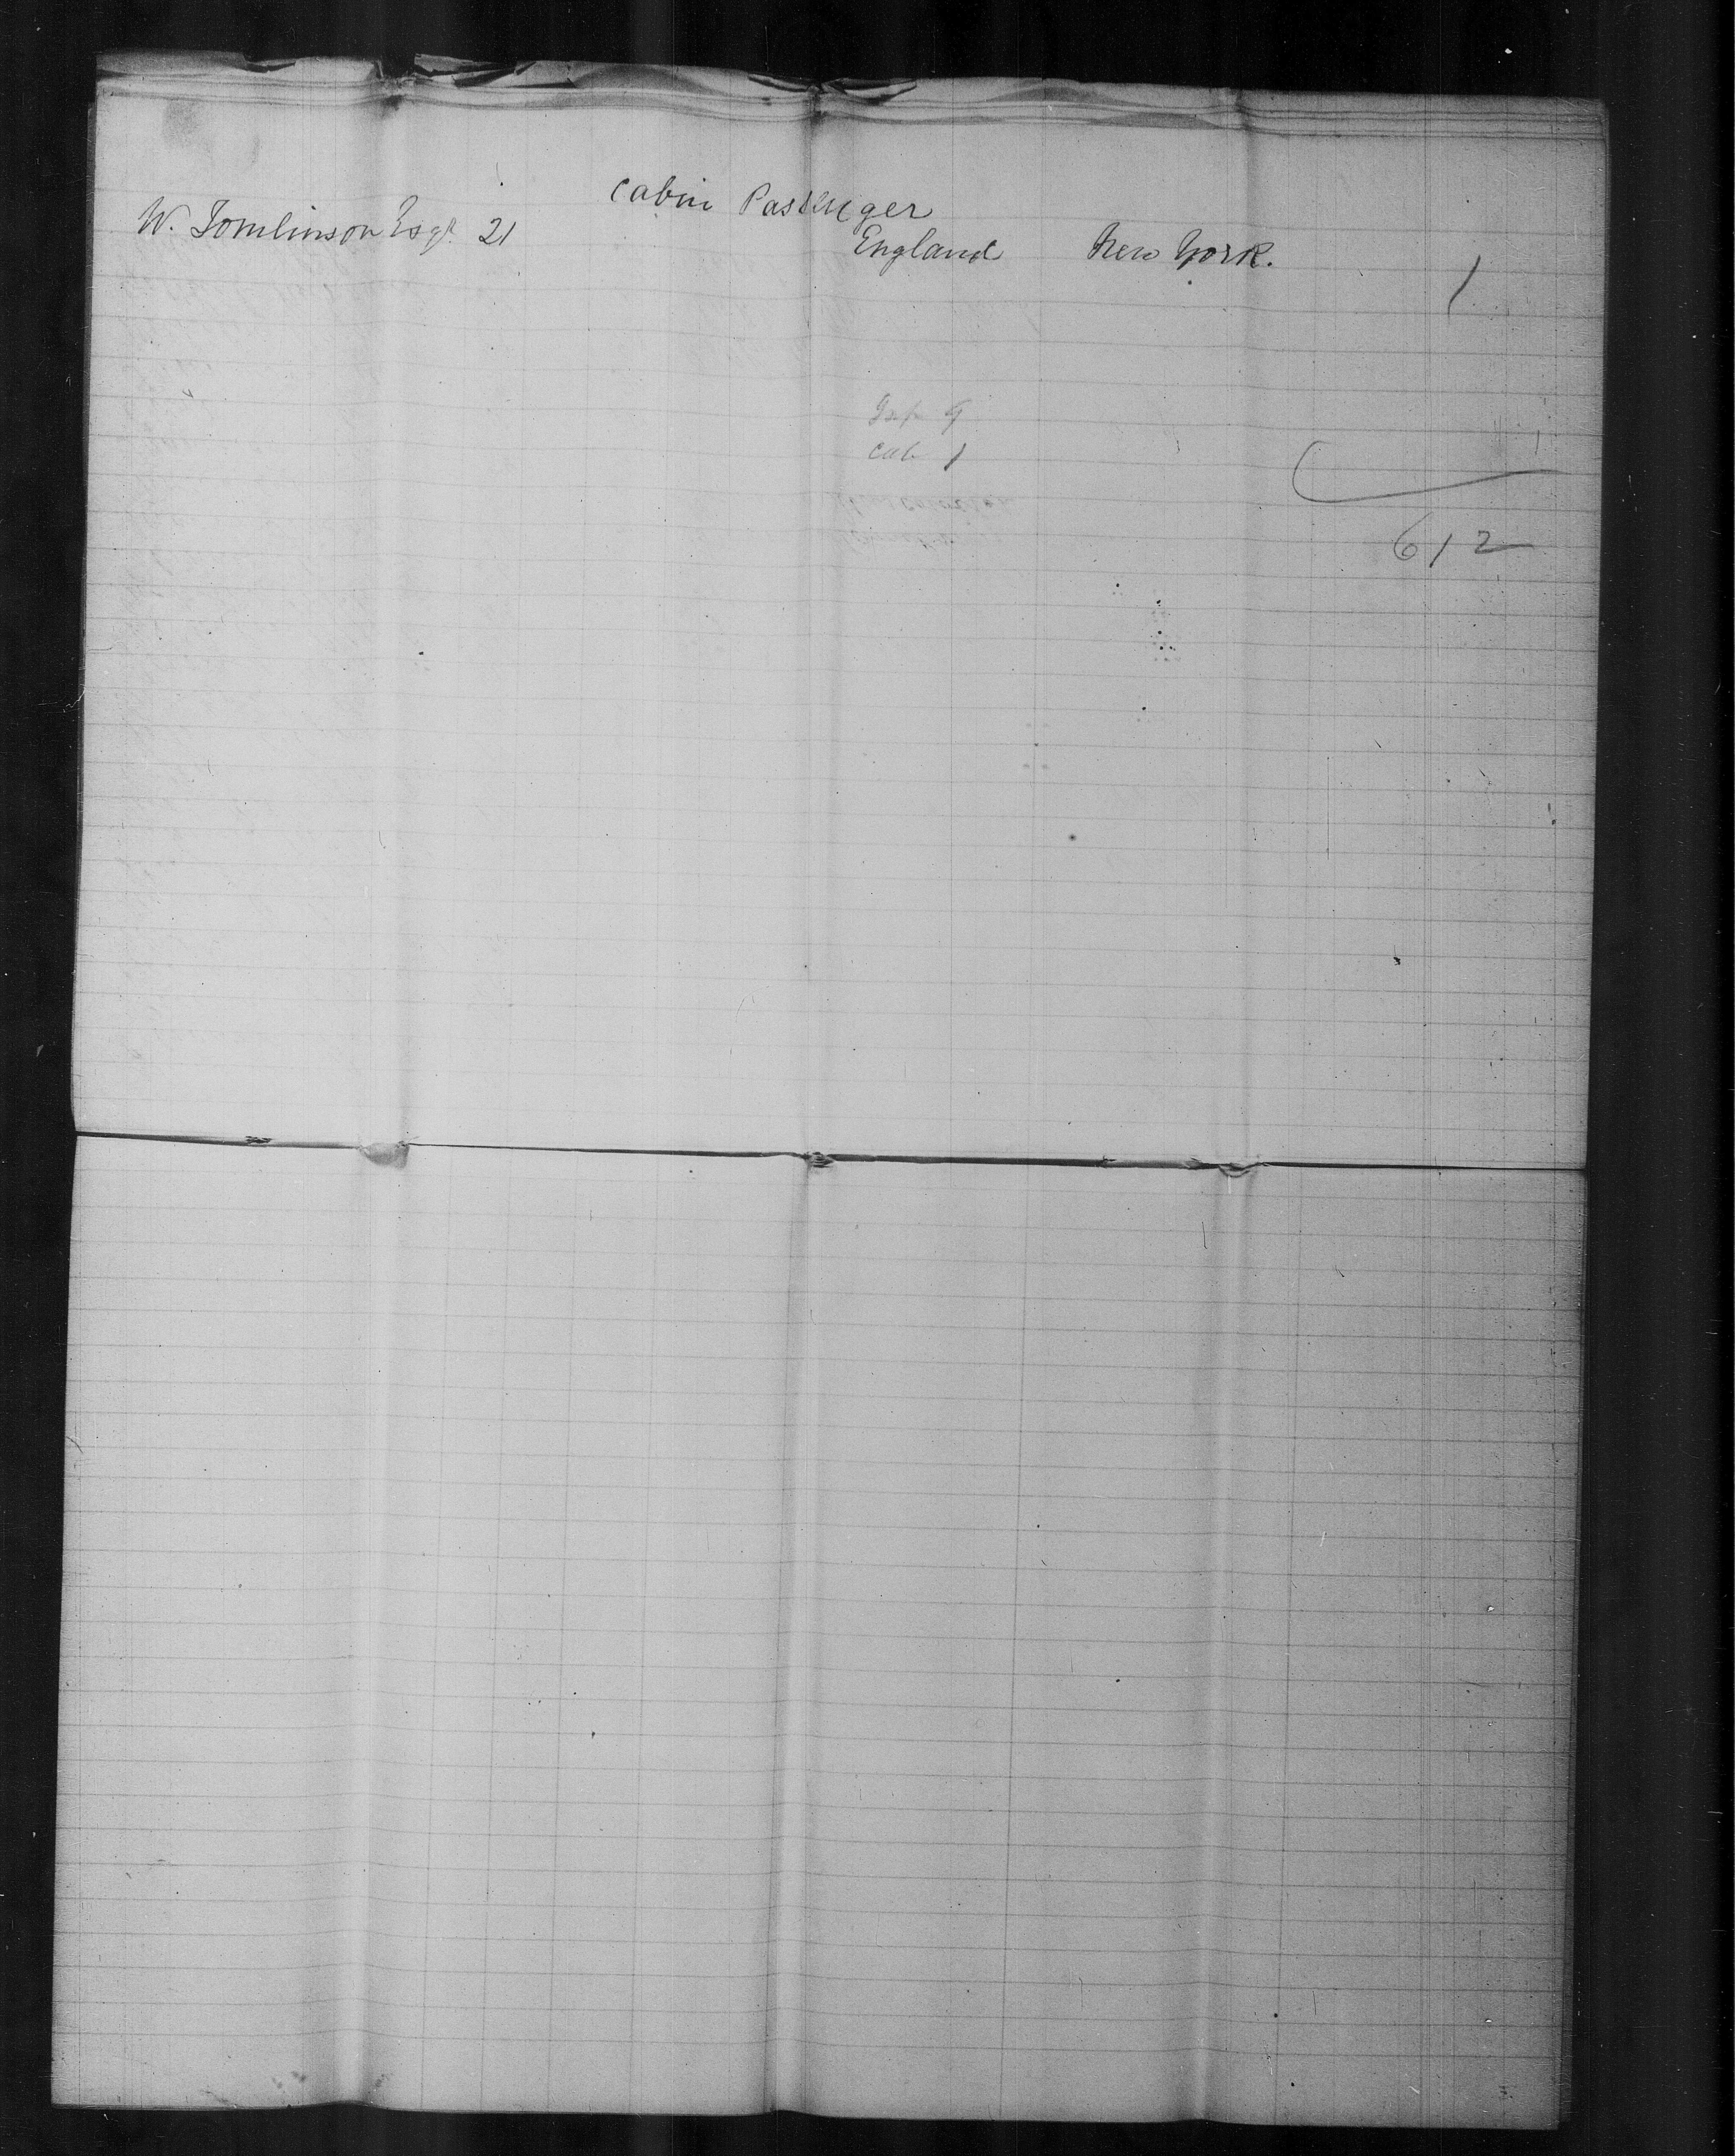 Cabin Passenger
W. Tomlinson Esqr. 21 England New York. 1
Cab 1
612